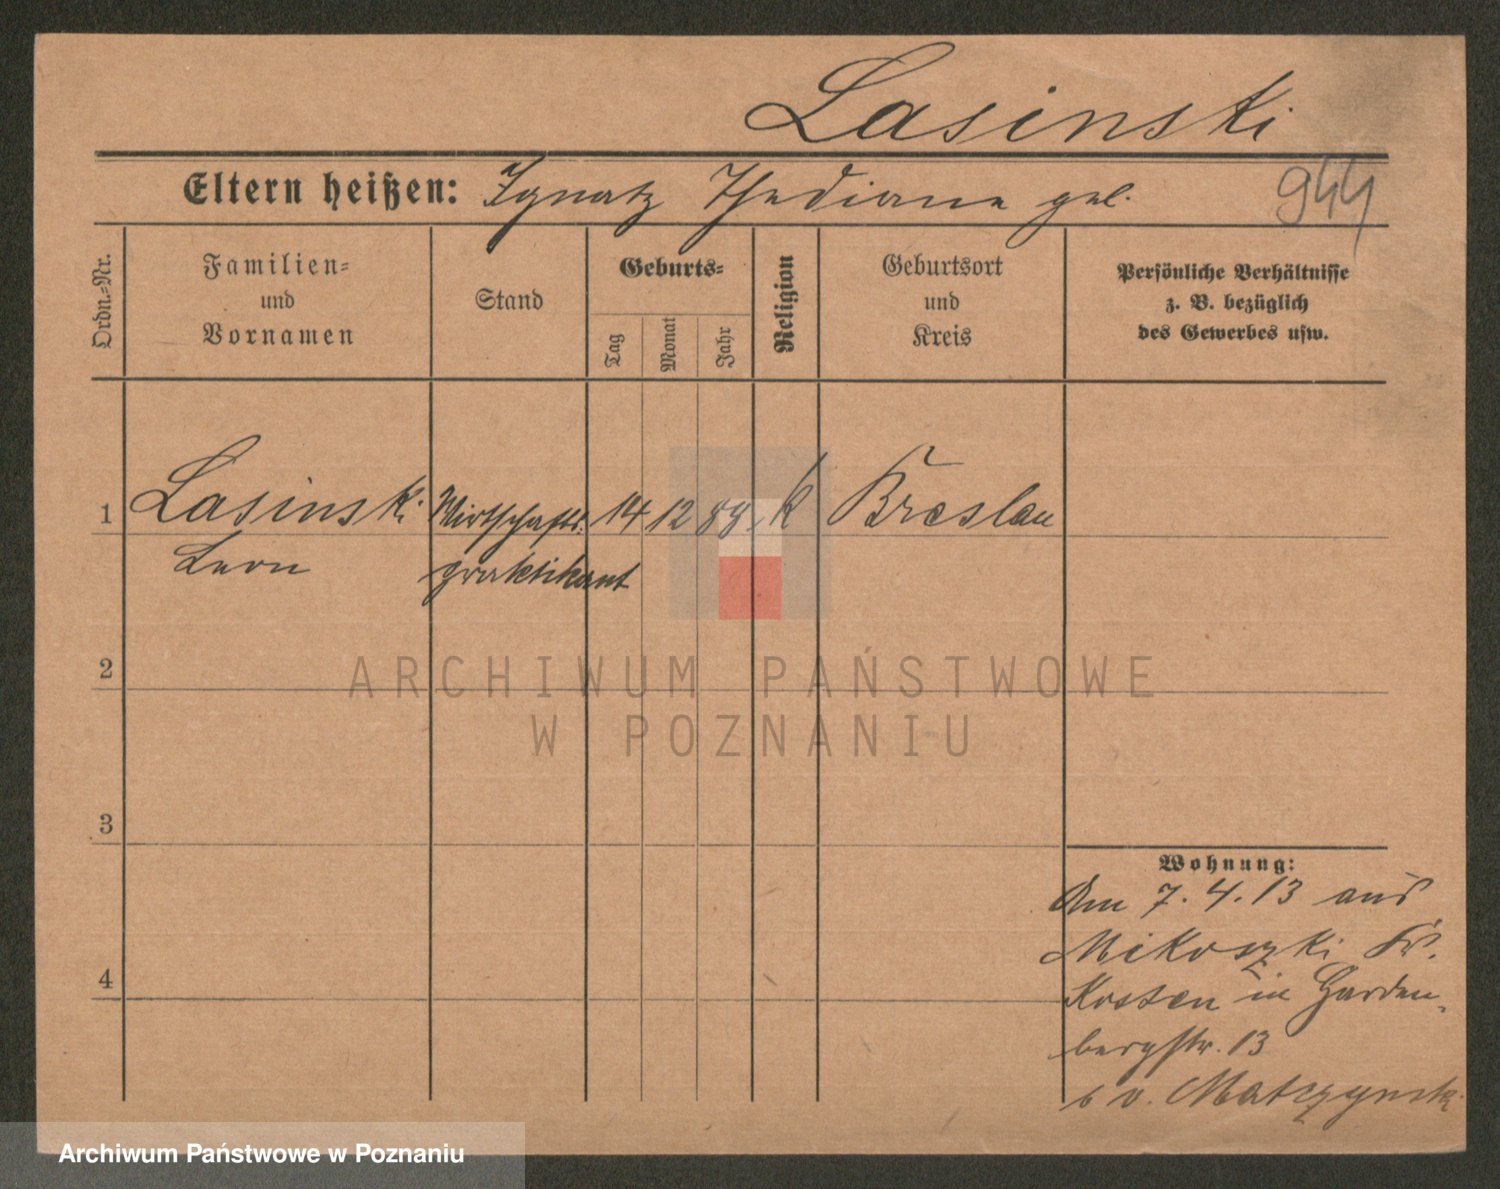 Lasinski
Eltern heißen: Ignatz Thediane geb.
944
Ordn.-Nr.
Familien-
und
Vornamen
Stand
Geburts-
Tag
Monat
Jahr
Religion
Geburtsort
und
Kreis
Persönliche Verhältnisse
z. B. bezüglich
des Gewerbes usw.
1
Lasinski Wirtschafts- 14 12 89 K Breslau
Leon praktikant
2
ARCHIWUM PAŃSTWOWE
W POZNANIU
3
Wohnung:
Am 7.4.13 aus
Mikoszki Kr.
4
Kosten in Garden-
bergstr. 13
b v. Matczynski
Archiwum Państwowe w Poznaniu